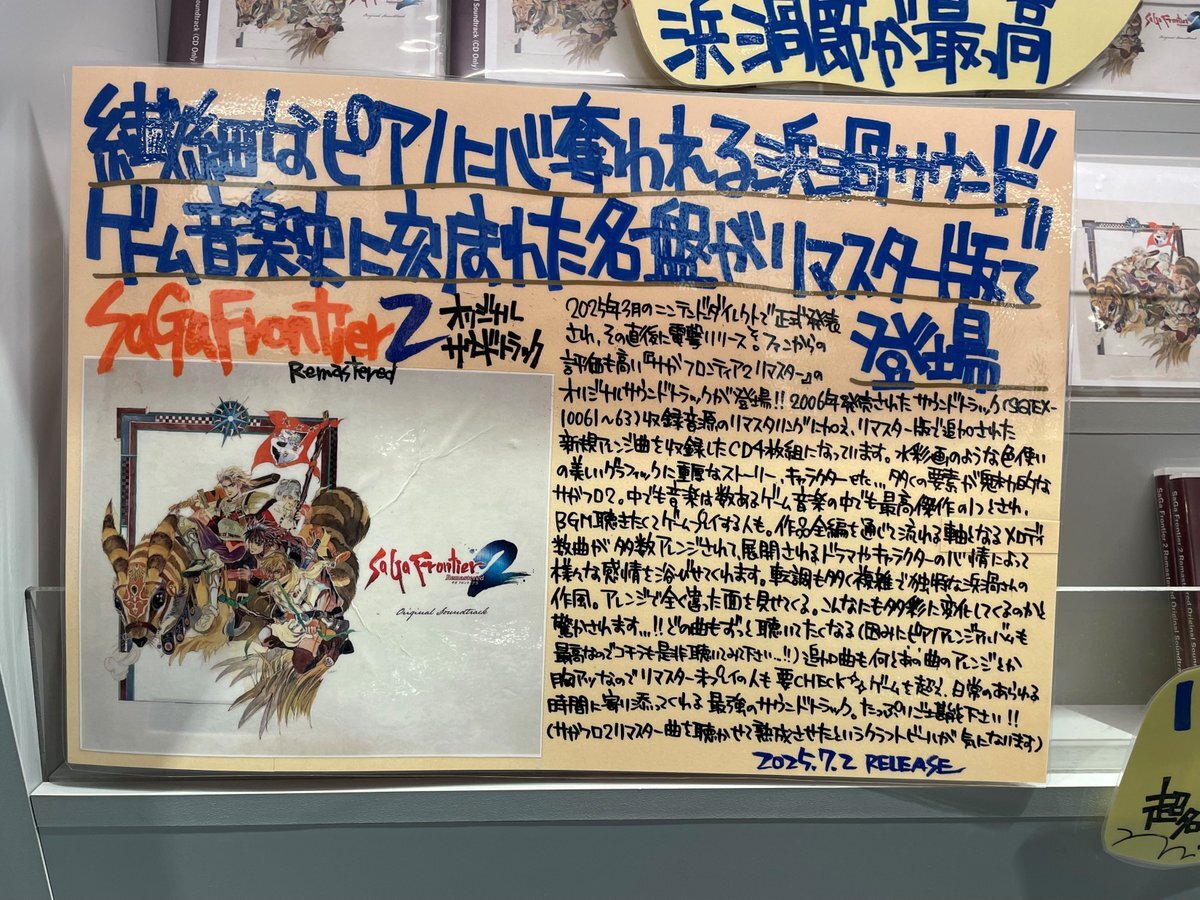 Soundtrack (CD Only
Original Soundtrack
浜渦節が最っ高
繊細なピアノに心奪われる浜渦サウンド
ゲーム音楽史に刻まれた名盤がリマスター版で
登場
SaGa Frontier 2 オリジナル
サウンドトラック
Remastered
2025年3月のニンテンドーダイレクトで正式発表
され、その直後に電撃リリース。ファンからの
評価も高い『サガフロンティア2リマスター』の
オリジナルサウンドトラックが登場!! 2006年発売されたサウンドトラック(SQEX-
10061〜63)収録音源のリマスタリングに加え、リマスター版で追加された
新規アレンジ曲を収録したCD4枚組になっています。水彩画のような色使い
の美しいグラフィックに重厚なストーリー、キャラクターせた... 多くの要素が魅力的な
サガフロ2。中でも音楽は数あるゲーム音楽の中でも最高傑作の1つとされ、
BGM聴きたくてゲームプレイする人も。作品全編を通じて流れる軸となるメロディ
数曲が多数アレンジされて、展開されるドラマやキャラクターの心情によって
様々な感情を浴びせてくれます。転調も多く複雑で独特な浜渦さんの
作風。アレンジで全く違った面を見せてくる。こんなにも多彩に変化してくるのかと
驚かされます...!! どの曲もずっと聴いてたくなる(因みにピアノアレンジアルバムも
最高なのでコチラも是非聴いてみて下さい...!!)追加曲も何とあの曲のアレンジとか
胸アツなのでリマスター未プレイの人も要CHECK☆ゲームを超え、日常のあらゆる
時間に寄り添ってくれる最強のサウンドトラック。たっぷりご堪能下さい!!
(サガフロ2リマスター曲を聴かせて熟成させたというクラフトビールが気になります)
2025.7.2 RELEASE
SaGa Frontier 2
Remastered
Original Soundtrack
SaGa Frontier 2 Remast
Original Soundtrack
超名